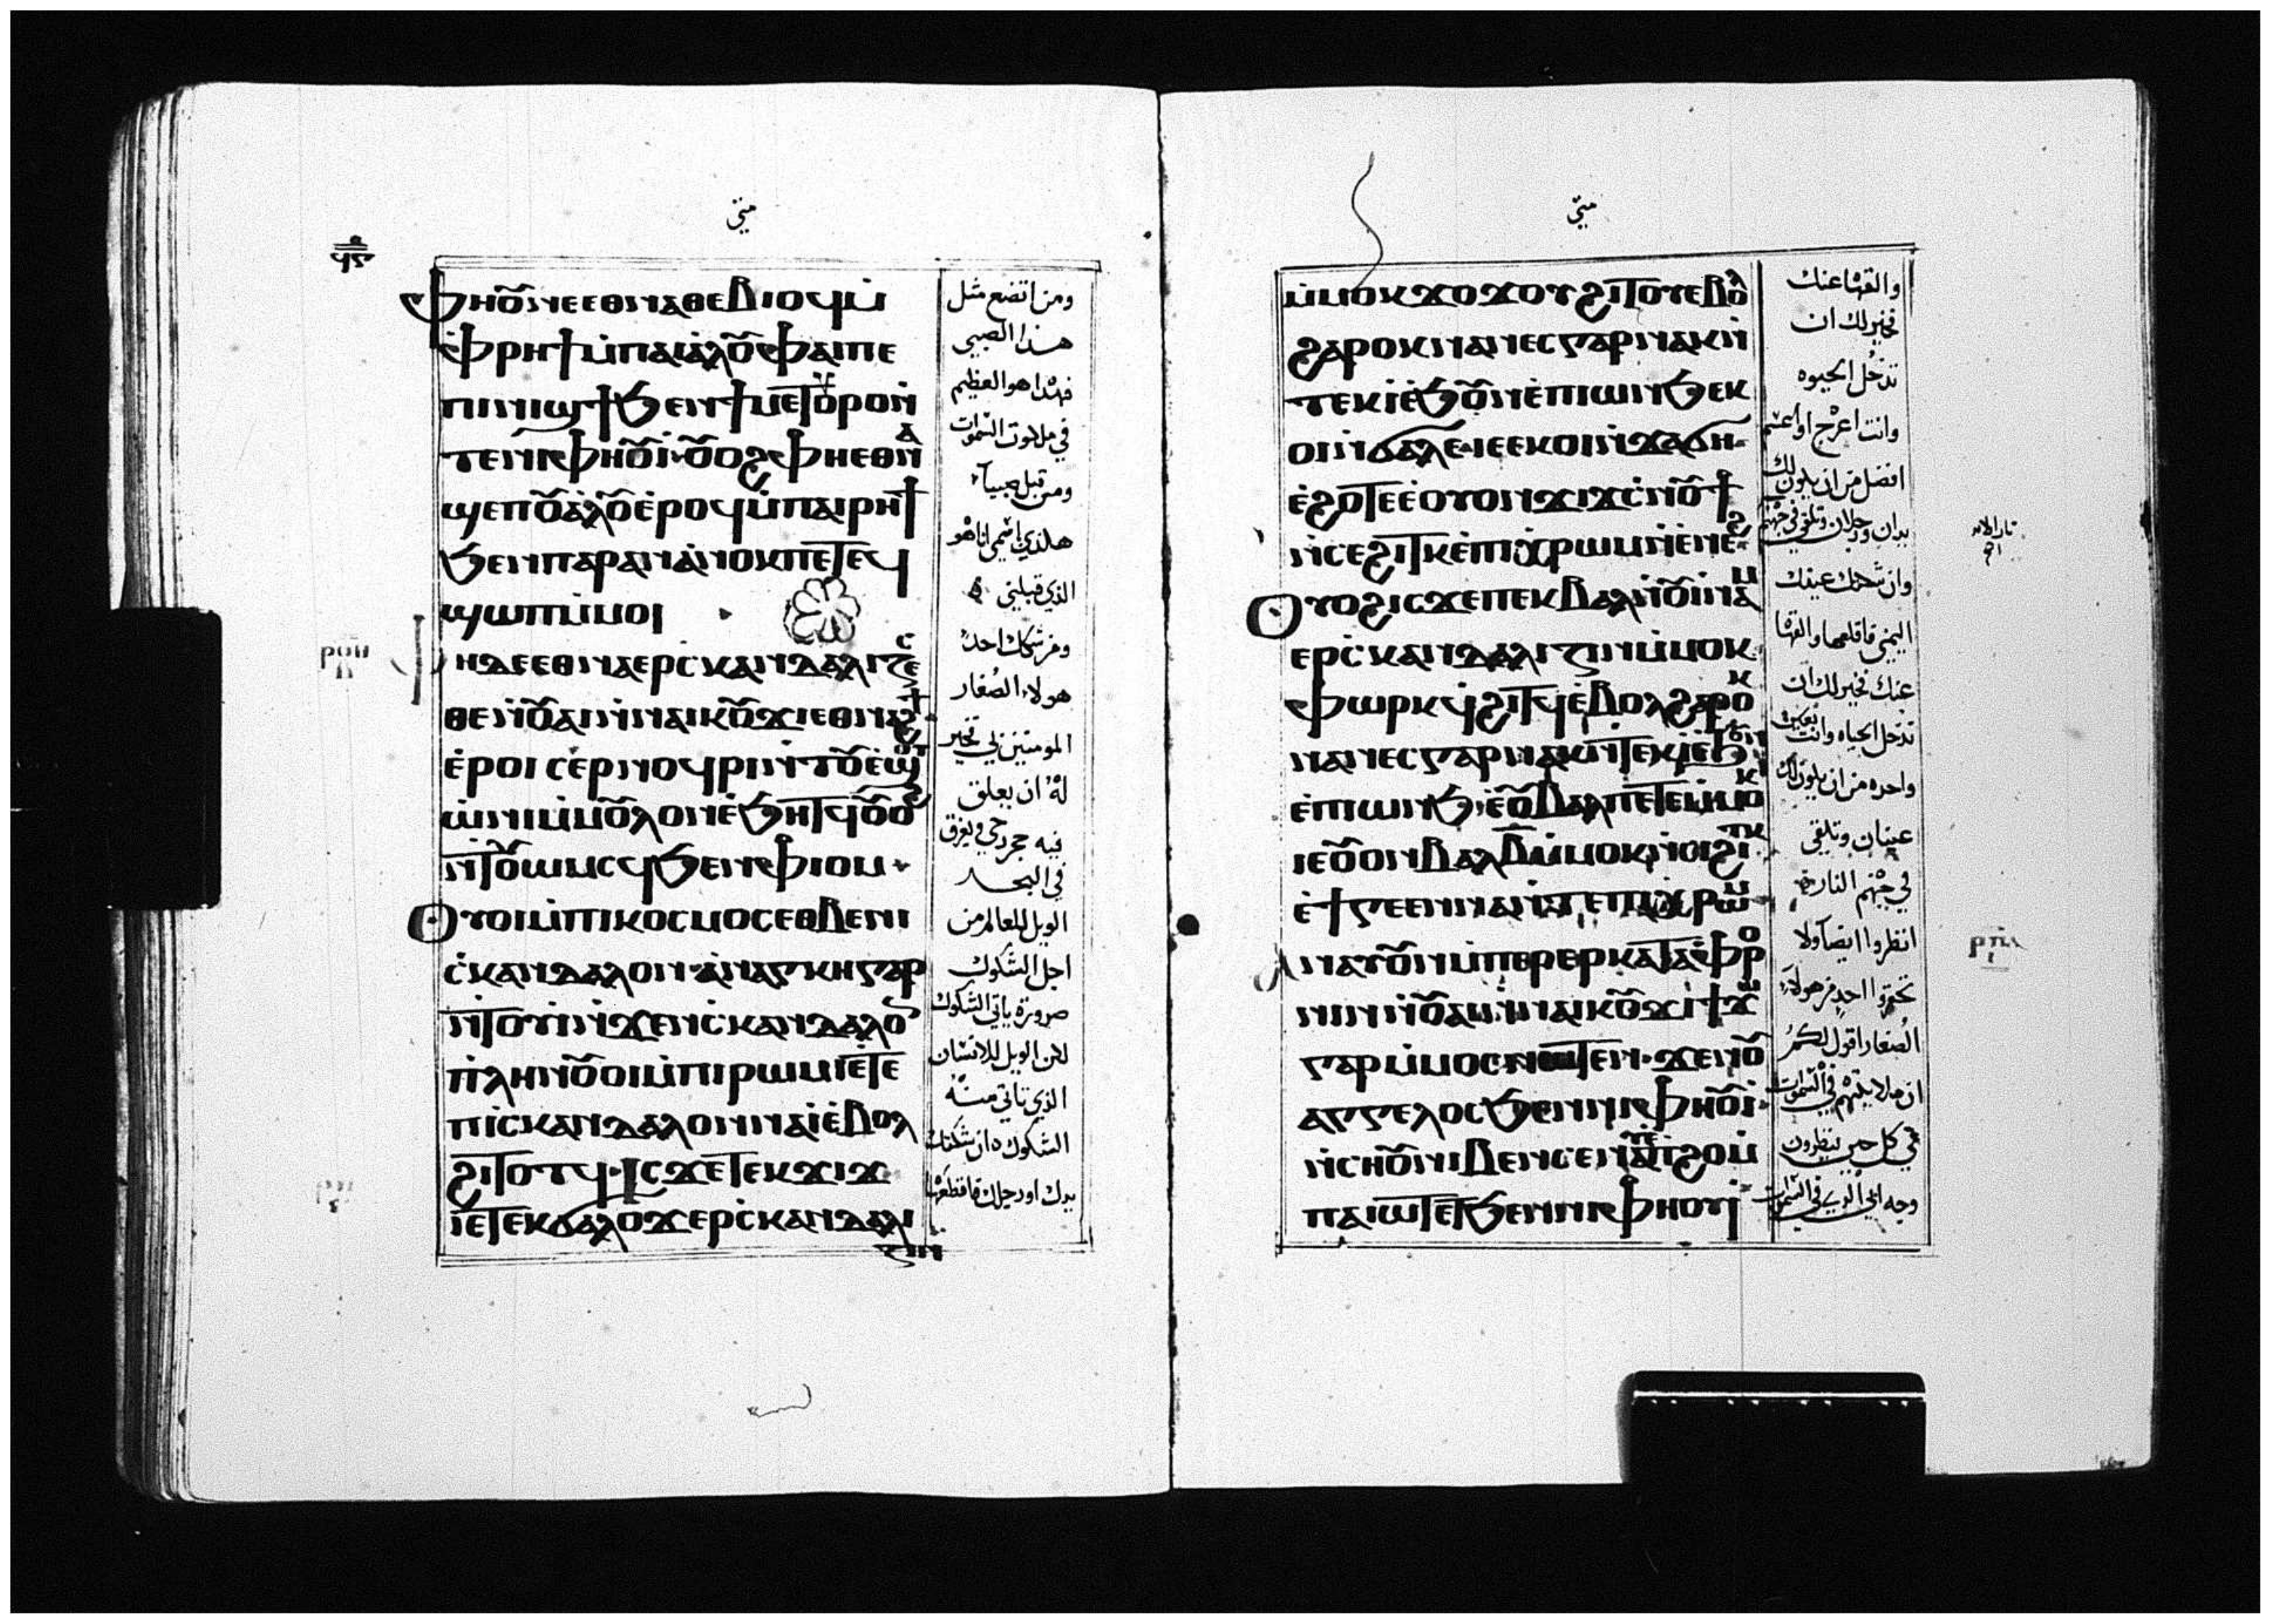 متي
ⲫⲏⲟⲩⲛ ⲉⲑⲛⲁⲑⲉⲃⲓⲟϥ ⲙ̀
ⲫ̀ⲣⲏϯ ⲙ̀ⲡⲁⲓⲁ̀ⲗⲟⲩ ⲫⲁⲓ ⲡⲉ
ⲡⲓⲛⲓϣϯ ϧⲉⲛ ϯⲙⲉⲧⲟⲩⲣⲟ ⲛ̀
ⲧⲉ ⲛⲓⲫⲏⲟⲩⲓ̀ ⲟⲩⲟϩ ⲫⲏⲉⲑⲛⲁ
ϣⲉⲡ ⲟⲩⲁ̀ⲗⲟⲩ ⲉ̀ⲣⲟϥ ⲙ̀ⲡⲁⲓⲣⲏϯ
ϧⲉⲛ ⲡⲁⲣⲁⲛ ⲁ̀ⲛⲟⲕ ⲡⲉⲧⲉϥ
ϣⲱⲡ ⲙ̀ⲙⲟⲓ
ⲫⲏ ⲇⲉ ⲉⲑⲛⲁⲉⲣⲥ̀ⲕⲁⲛⲇⲁⲗⲓⲍⲉⲥ
ⲑⲉ ⲛ̀ⲟⲩⲁⲓ ⲛ̀ⲛⲁⲓⲕⲟⲩϫⲓ ⲉⲑⲛⲁϩϯ
ⲉ̀ⲣⲟⲓ ⲥⲉⲣⲛⲟϥⲣⲓ ⲛⲧⲟⲩⲉ̀ϣⲧ
ⲱ̀ⲛⲓ ⲙ̀ⲙⲟⲩⲗⲟⲛ ⲉ̀ϧⲏⲧϥ ⲟⲩⲟϩ
ⲛ̀ⲧⲟⲩⲱⲙⲥϥ ϧⲉⲛ ⲫⲓⲟⲙ
ⲟⲩⲟⲓ ⲙ̀ⲡⲓⲕⲟⲥⲙⲟⲥ ⲉⲑⲃⲉ ⲛⲓ
ⲥ̀ⲕⲁⲛⲇⲁⲗⲟⲛ ⲁ̀ⲛⲁⲅⲕⲏ ⲅⲁⲣ
ⲛ̀ⲧⲟⲩⲓ̀ ⲛ̀ϫⲉ ⲛⲓⲥ̀ⲕⲁⲛⲇⲁⲗⲟⲛ
ⲡ̀ⲗⲏⲛ ⲟⲩⲟⲓ ⲙ̀ⲡⲓⲣⲱⲙⲓ ⲉ̀ⲧⲉ
ⲡⲓⲥ̀ⲕⲁⲛⲇⲁⲗⲟⲛ ⲛⲁⲓ̀ ⲉ̀ⲃⲟⲗ
ϩⲓⲧⲟⲧϥ ⲓⲥϫⲉ ⲧⲉⲕϫⲓϫ
ⲓⲉ ⲧⲉⲕϭⲁⲗⲟϫ ⲉⲣⲥ̀ⲕⲁⲛⲇⲁⲗⲓ
ⲍⲓⲛ
ومن اتضع مثل
هذا الصبي
فهذا هو العظيم
في ملكوت السموات
ومن قبل صبيآ
هكذي باسمي انا هو
الذي قبلني
ومن شكك احد
هولاء الصغار
المومنين بي فخير
له ان يعلق
فيه حجر رحي ويغرق
في البحر
الويل للعالم من
اجل الشكوك
ضرورة ياتي الشكوك
لكن الويل للانسان
الذي تاتي منه
الشكوك ان شككتك
يدك او رجلك فاقطعها
متي
ⲙ̀ⲙⲟⲕ ϫⲟϫⲟⲩ ϩⲓⲧⲟⲩ ⲉ̀ⲃⲟⲗ
ϩⲁⲣⲟⲕ ⲛⲁⲛⲉⲥ ⲅⲁⲣ ⲛⲁⲕ ⲛ̀
ⲧⲉⲕⲓ̀ ⲉ̀ϧⲟⲩⲛ ⲉ̀ⲡⲓⲱⲛϧ ⲉⲕ
ⲟⲓ ⲛ̀ϭⲁⲗⲉ ⲓⲉ ⲉⲕⲟⲓ ⲛ̀ϫⲁϭⲏ
ⲉ̀ϩⲟⲧⲉ ⲉ̀ⲟⲩⲟⲛ ϫⲓϫ ⲥ̀ⲛⲟⲩϯ
ⲛ̀ⲥⲉϩⲓⲧⲕ ⲉ̀ⲡⲓⲭⲣⲱⲙ ⲛ̀ⲉ̀ⲛⲉϩ
ⲟⲩⲟϩ ⲓⲥϫⲉ ⲡⲉⲕⲃⲁⲗ ⲛ̀ⲟⲩⲓⲛⲁⲙ
ⲉⲣⲥ̀ⲕⲁⲛⲇⲁⲗⲓⲍⲓⲛ ⲙ̀ⲙⲟⲕ
ⲫⲱⲣⲕϥ ϩⲓⲧϥ ⲉ̀ⲃⲟⲗ ϩⲁⲣⲟⲕ
ⲛⲁⲛⲉⲥ ⲅⲁⲣ ⲛⲁⲕ ⲛ̀ⲧⲉⲕⲓ̀ ⲉ̀ϧⲟⲩⲛ
ⲉ̀ⲡⲓⲱⲛϧ ⲉ̀ⲟⲩⲃⲁⲗ ⲡⲉⲧⲉⲙ̀ⲙⲟⲕ
ⲓⲉ ⲟⲩⲟⲛ ⲃⲁⲗ ⲃ̅ ⲙ̀ⲙⲟⲕ ⲛ̀ⲥⲉϩⲓⲧⲕ
ⲉ̀ϯⲅⲉⲉⲛⲛⲁ ⲛ̀ⲧⲉ ⲡⲓⲭⲣⲱⲙ
ⲁⲛⲁⲩ ⲟⲩⲛ ⲙ̀ⲡⲉⲣⲉⲣⲕⲁⲧⲁⲫⲣⲟ
ⲛⲓⲛ ⲛ̀ⲟⲩⲁⲓ ⲛ̀ⲛⲁⲓⲕⲟⲩϫⲓ ϯϫⲱ
ⲅⲁⲣ ⲙ̀ⲙⲟⲥ ⲛⲱⲧⲉⲛ ϫⲉ ⲛⲟⲩ
ⲁⲅⲅⲉⲗⲟⲥ ϧⲉⲛ ⲛⲓⲫⲏⲟⲩⲓ̀
ⲛ̀ⲥⲏⲟⲩ ⲛⲓⲃⲉⲛ ⲥⲉⲛⲁⲩ ⲡⲉ ⲡ̀ϩⲟ ⲙ̀
ⲡⲁⲓⲱⲧ ⲉⲧϧⲉⲛ ⲛⲓⲫⲏⲟⲩⲓ̀
والقها عنك
فخير لك ان
تدخل الحيوه
وانت اعرج او اعسم
افضل من ان يكون لك
يدان ورجلان وتلقي في جهنم
وان شككتك عينك
اليمني فاقلعها والقها
عنك فخير لك ان
تدخل الحياه وانت بعين
واحده من ان يكون لك
عينان وتلقي
في جهنم النار
انظروا ايضآ ولا
تحقروا احد من هولاء
الصغار اقول لكم
ان ملايكتهم في السموات
في كل حين ينظرون
وجه ابي الذي في السموات